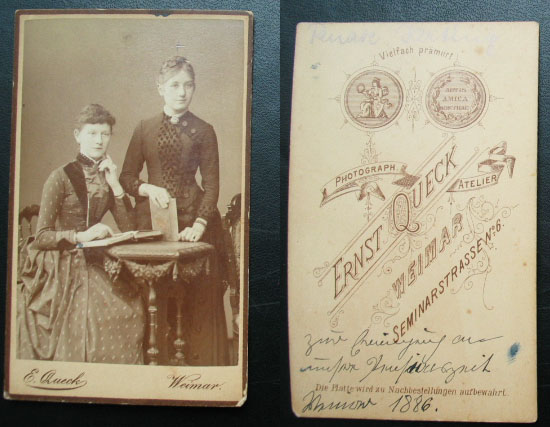 E. Queck
Weimar.
Vielfach prämirt
AMICA
PHOTOGRAPH.
ATELIER
ERNST QUECK
WEIMAR
SEMINARSTRASSE No 6.
zur Erinnerung an
unsere
Die Platte wird zu Nachbestellungen aufbewahrt.
Weimar 1886.